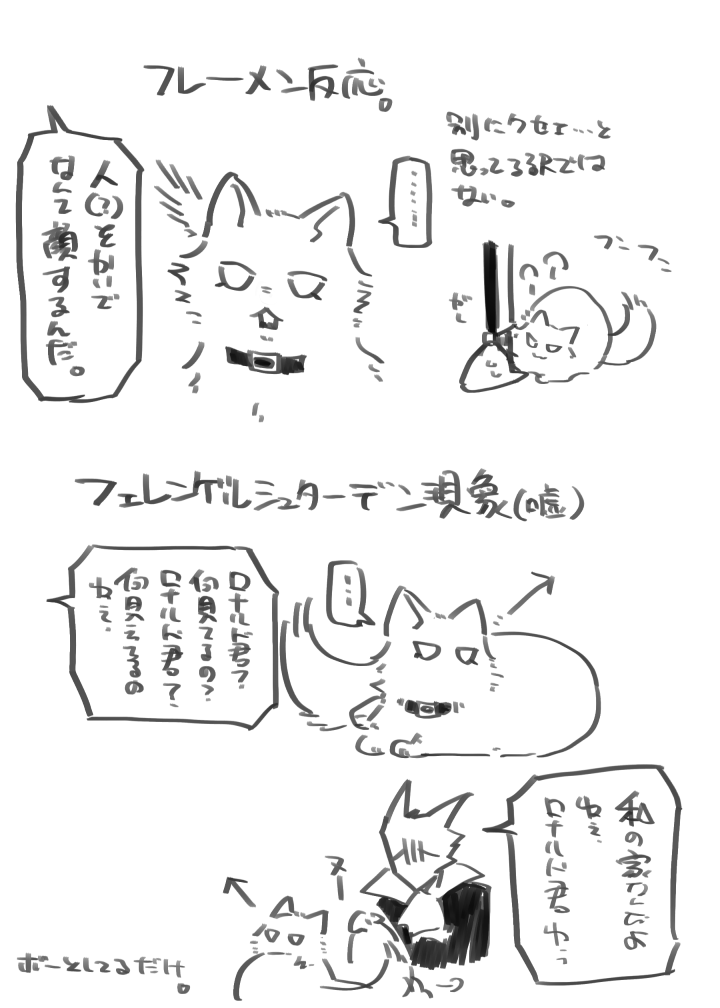 フレーメン反応。
人(?)をかいで
なんて顔するんだ。
………
別にクセェ…と
思ってるRでは
ない。
フンフン
フェレンゲルシュターデン現象(嘘)
ロナルド君?
何見てるの?
ロナルド君?
何見えてるの
ねえ、
……
私の家なんだよ
ねえ、
ロナルド君
ヌー
ボーとしてるだけ。